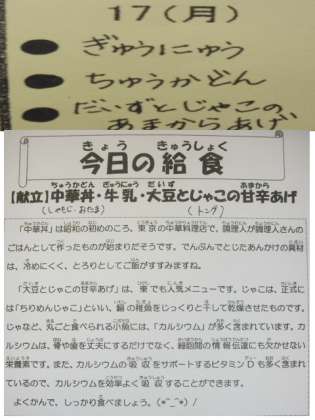 17(月)
ぎゅうにゅう
ちゅうかどん
だいずとじゃこの
あまからあげ
きょう きゅうしょく
今日の給食
ちゅうかどん ぎゅうにゅう だいず あまから
【献立】中華丼・牛乳・大豆とじゃこの甘辛あげ
(しゃもじ・おたま) (トング)
「中華丼」は昭和の初めのころ、東京の中華料理店で、調理人が調理人さんの
ごはんとして作ったものが始まりだそうです。でんぷんでとじたあんかけの具材
は、冷めにくく、とろりとしてご飯がすすみますね。
「大豆とじゃこの甘辛あげ」は、東でも人気メニューです。じゃこは、正式に
は「ちりめんじゃこ」といい、鰯の稚魚をじっくりと干して乾燥させたものです。
じゃなど、丸ごと食べられる小魚には、「カルシウム」が多く含まれています。カル
シウムは、骨や歯を丈夫にするだけでなく、細胞間の情報伝達にも欠かせない
栄養素です。また、カルシウムの吸収をサポートするビタミンDも多く含まれ
ているので、カルシウムを効率よく吸収することができます。
よくかんで、しっかり食べましょう。(*^_^*)/